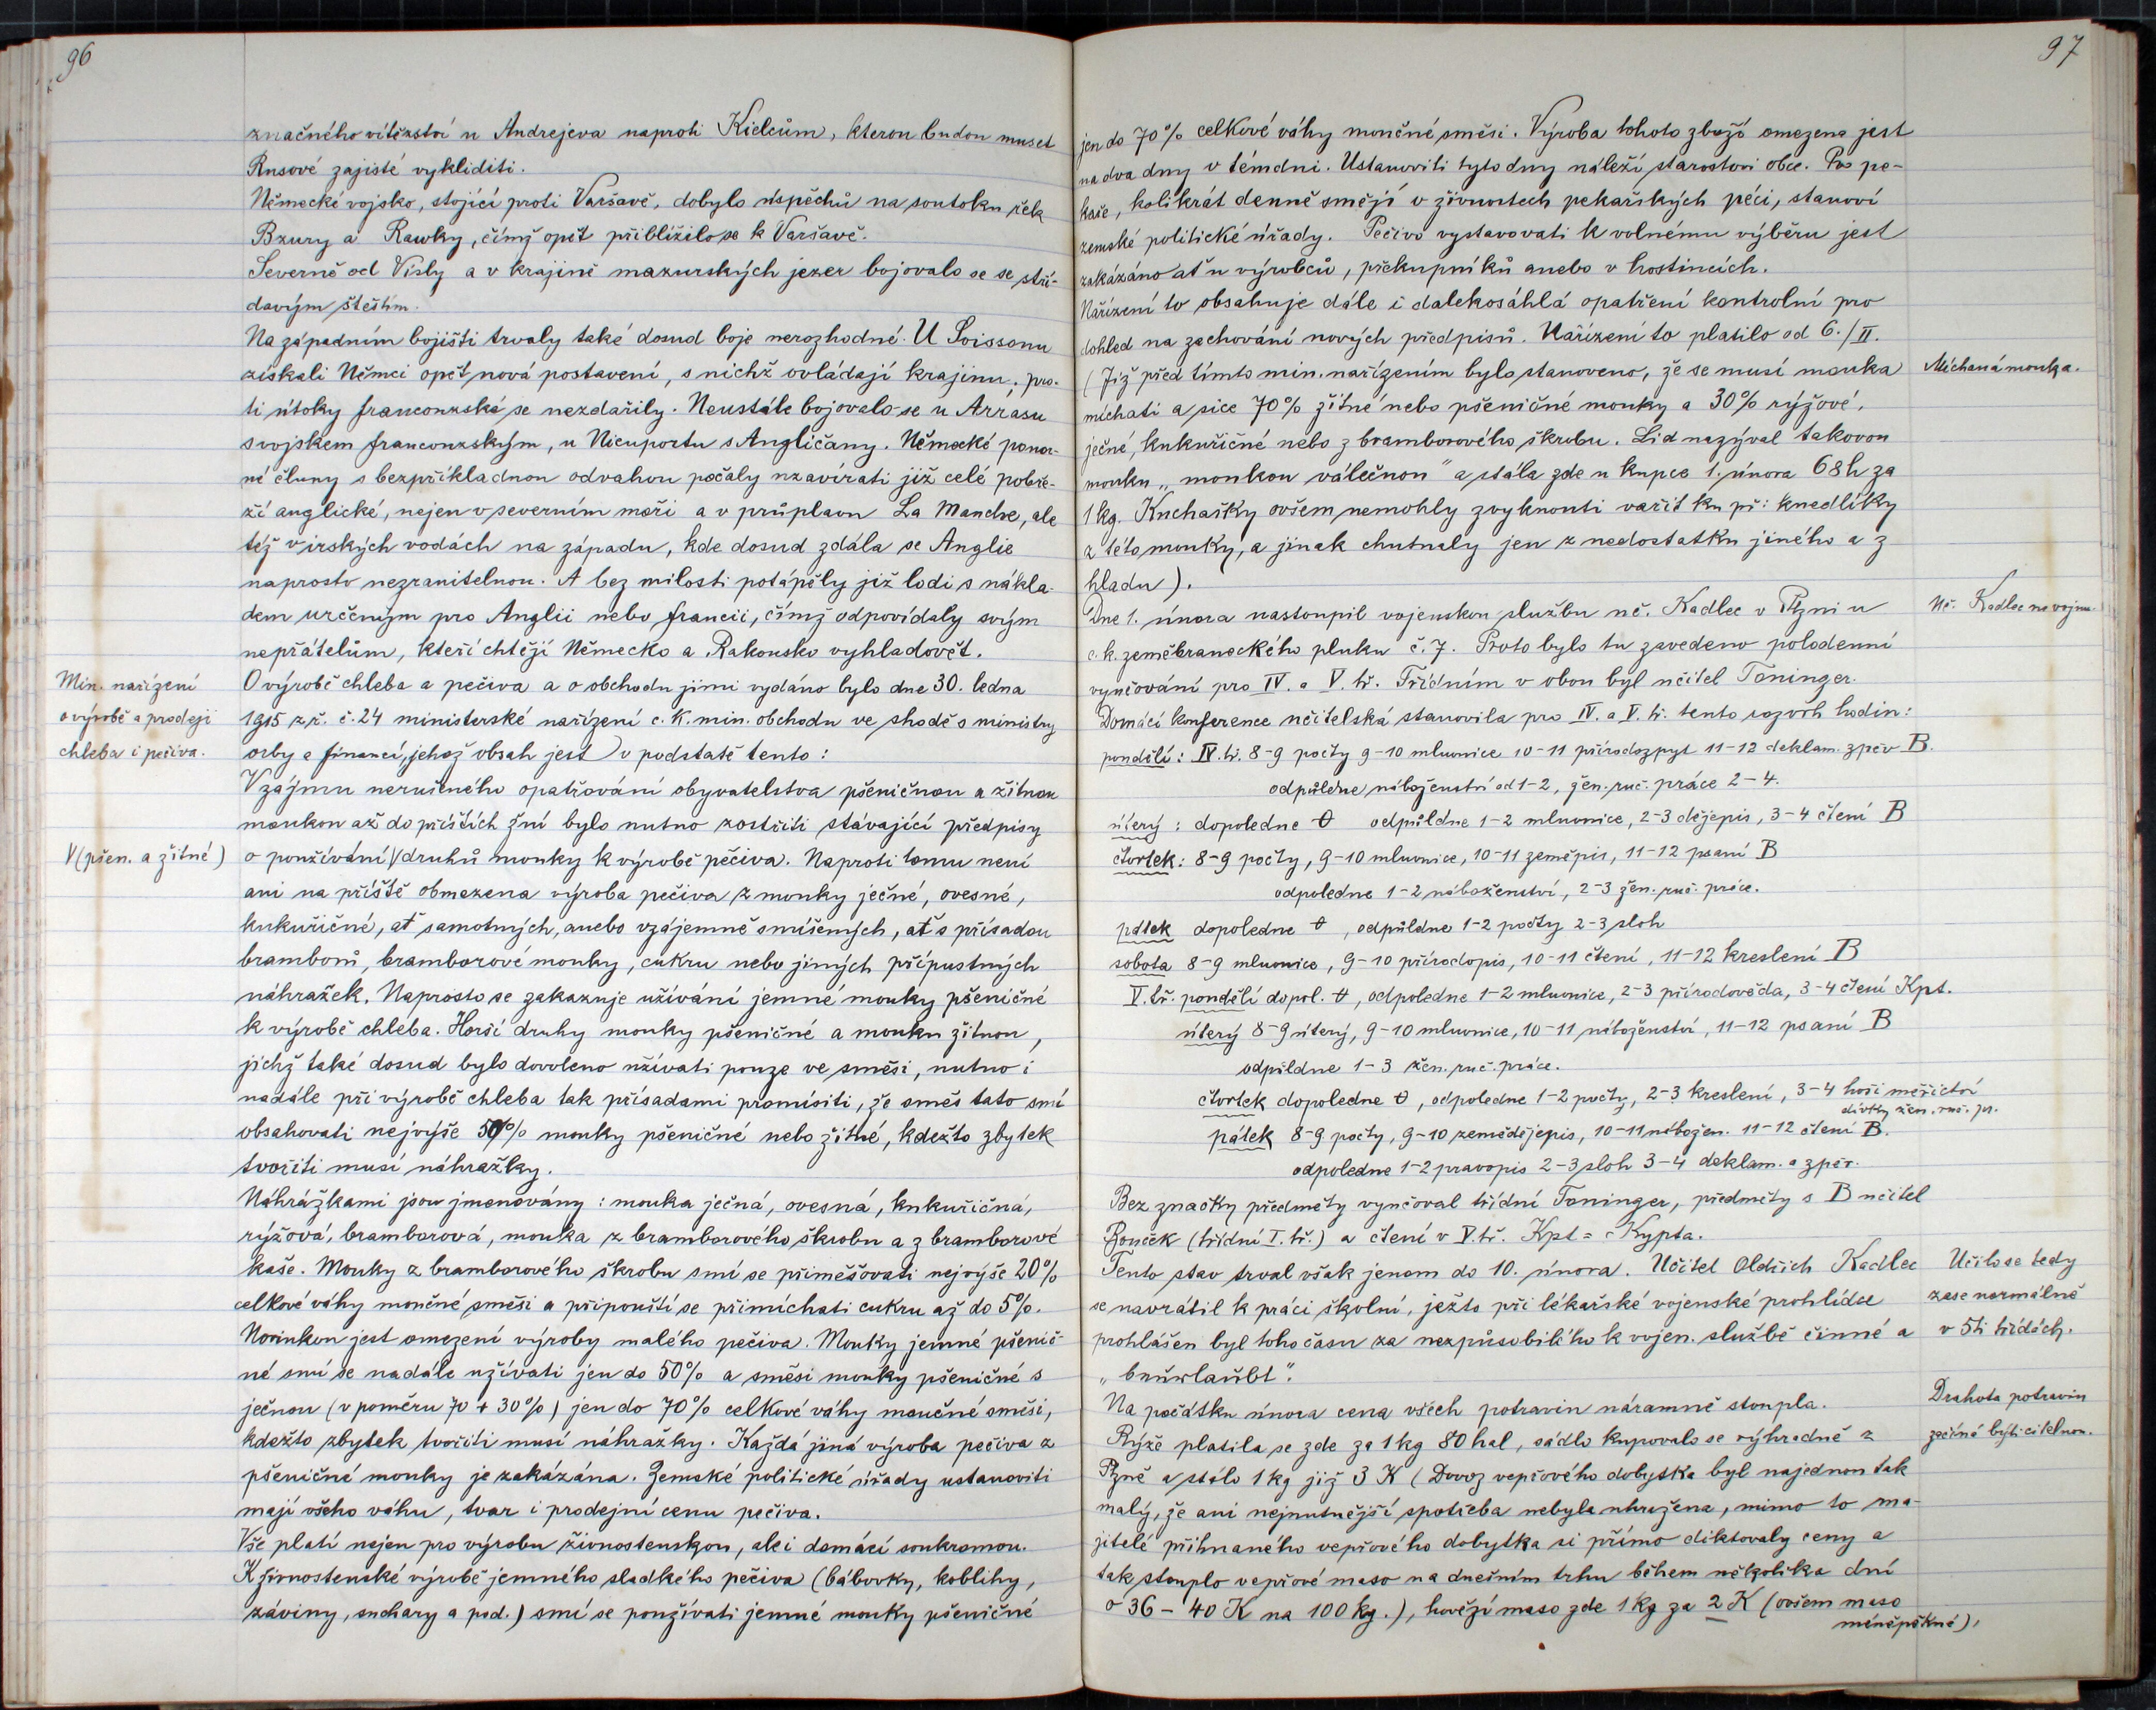 96
značného vítězství u Andrejeva naproti Kielcům, kterou budou muset
Rusové zajisté vykliditi.
Německé vojsko, stojící proti Varšavě, dobylo úspěchů na soutoku řek
Bzury a Rawky, čímž opět přiblížilo se k Varšavě.
Severně od Visly a v krajině mazurských jezer bojovalo se se stří-
davým štěstím.
Na západním bojišti trvaly také dosud boje nerozhodné. U Soissonu
získali Němci opět nová postavení, s nichž ovládají krajinu, pro-
ti útoky francouzské se nezdařily. Neustále bojovalo se u Arrasu
s vojskem francouzským, u Nieuportu s Angličany. Německé ponor-
né čluny s bezpříkladnou odvahou počaly uzavírati již celé pobře-
ží anglické, nejen v severním moři a v průplavu La Manche, ale
též v irských vodách na západu, kde dosud zdála se Anglie
naprosto nezranitelnou. A bez milosti potápěly již lodi s nákla-
dem určeným pro Anglii nebo Francii, čímž odpovídaly svým
nepřátelům, kteří chtějí Německo a Rakousko vyhladovět.
Min. nařízení
o výrobě a prodeji
chleba i pečiva.
O výrobě chleba a pečiva a o obchodu jimi vydáno bylo dne 30. ledna
1915 z.ř. č. 24 ministerské nařízení c. k. min. obchodu ve shodě s ministry
orby a financí, jehož obsah jest v podstatě tento:
V zájmu nerušeného opatřování obyvatelstva pšeničnou a žitnou
moukou až do příštích žní bylo nutno zostřiti stávající předpisy
V (pšen. a žitné)
o používání V druhů mouky k výrobě pečiva. Naproti tomu není
ani na příště obmezena výroba pečiva z mouky ječné, ovesné,
kukuřičné, ať samotných, anebo vzájemně smíšených, ať s přísadou
bramborů, bramborové mouky, cukru nebo jiných přípustných
náhražek. Naprosto se zakazuje užívání jemné mouky pšeničné
k výrobě chleba. Horší druhy mouky pšeničné a mouku žitnou,
jichž také dosud bylo dovoleno užívati pouze ve směsi, nutno i
nadále při výrobě chleba tak přísadami promísiti, že směs tato smí
obsahovati nejvýše 50% mouky pšeničné nebo žitné, kdežto zbytek
tvořiti musí náhražky.
Náhražkami jsou jmenovány: mouka ječná, ovesná, kukuřičná,
rýžová, bramborová, mouka z bramborového škrobu a z bramborové
kaše. Mouky z bramborového škrobu smí se přiměšovati nejvýše 20%
celkové váhy moučné směsi a připouští se přimíchati cukru až do 5%.
Novinkou jest omezení výroby malého pečiva. Mouky jemné pšenič-
né smí se nadále užívati jen do 50% a směsi mouky pšeničné s
ječnou (v poměru 70 + 30%) jen do 70% celkové váhy moučné směsi,
kdežto zbytek tvořiti musí náhražky. Každá jiná výroba pečiva z
pšeničné mouky je zakázána. Zemské politické úřady ustanoviti
mají všeho váhu, tvar i prodejní cenu pečiva.
Vše platí nejen pro výrobu živnostenskou, ale i domácí soukromou.
K živnostenské výrobě jemného sladkého pečiva (bábovky, koblihy,
záviny, suchary a pod.) smí se používati jemné mouky pšeničné
97
jen do 70% celkové váhy moučné směsi. Výroba tohoto zboží omezena jest
na dva dny v témdni. Ustanoviti tyto dny náleží starostovi obce. Pro pe-
kaře, kolikrát denně smějí v živnostech pekařských péci, stanoví
zemské politické úřady. Pečivo vystavovati k volnému výběru jest
zakázáno ať u výrobců, překupníků anebo v hostincích.
Nařízení to obsahuje dále i dalekosáhlá opatření kontrolní pro
dohled na zachování nových předpisů. Nařízení to platilo od 6./II.
(Již před tímto min. nařízením bylo stanoveno, že se musí mouka
Míchaná mouka.
míchati a sice 70% žitné nebo pšeničné mouky a 30% rýžové,
ječné, kukuřičné nebo z bramborového škrobu. Lid nazýval takovou
mouku „moukou válečnou" a stála zde u kupce 1. února 68 h za
1 kg. Kuchařky ovšem nemohly zvyknouti vařit ku př: knedlíky
z této mouky, a jinak chutnaly jen z nedostatku jiného a z
hladu).
Dne 1. února nastoupil vojenskou službu uč. Kadlec v Plzni u
Uč. Kadlec na vojnu.
c. k. zeměbraneckého pluku č. 7. Proto bylo tu zavedeno polodenní
vyučování pro IV. a V. tř. Třídním v obou byl učitel Toninger.
Domácí konference učitelská stanovila pro IV. a V. tř. tento rozvrh hodin:
pondělí: IV. tř. 8-9 počty 9-10 mluvnice 10-11 přírodozpyt 11-12 deklam. zpěv B.
odpůldne náboženství od 1-2, žen. ruč. práce 2-4.
úterý: dopoledne θ odpůldne 1-2 mluvnice, 2-3 dějepis, 3-4 čtení B
čtvrtek: 8-9 počty, 9-10 mluvnice, 10-11 zeměpis, 11-12 psaní B
odpoledne 1-2 náboženství, 2-3 žen. ruč. práce.
pátek dopoledne θ, odpůldne 1-2 počty 2-3 sloh
sobota 8-9 mluvnice, 9-10 přírodopis, 10-11 čtení, 11-12 kreslení B
V. tř. pondělí dopol. θ, odpoledne 1-2 mluvnice, 2-3 přírodověda, 3-4 čtení Kpt.
úterý 8-9 úterý, 9-10 mluvnice, 10-11 náboženství, 11-12 psaní B
odpůldne 1-3 žen. ruč. práce.
čtvrtek dopoledne θ, odpoledne 1-2 počty, 2-3 kreslení, 3-4 hoši měřictví
dívky žen. ruč. pr.
pátek 8-9 počty, 9-10 zemědějepis, 10-11 nábožen. 11-12 čtení B.
odpoledne 1-2 pravopis 2-3 sloh 3-4 deklam. a zpěv.
Bez značky předměty vyučoval třídní Toninger, předměty s B učitel
Bouček (třídní I. tř.) a čtení v V. tř. Kpt = Kypta.
Tento stav trval však jenom do 10. února. Učitel Oldřich Kadlec
se navrátil k práci školní, ježto při lékařské vojenské prohlídce
prohlášen byl toho času za nezpůsobilého k vojen. službě činné a
„beurlaubt".
Učilo se tedy
zase normálně
v 5ti třídách.
Na počátku února cena všech potravin náramně stoupla.
Drahota potravin
začíná býti citelnou.
Rýže platila se zde za 1 kg 80 hal, sádlo kupovalo se výhradně z
Plzně a stálo 1 kg již 3 K (Dovoz vepřového dobytka byl najednou tak
malý, že ani nejnutnější spotřeba nebyla uhražena, mimo to ma-
jitelé přihnaného vepřového dobytka si přímo diktovaly ceny a
tak stouplo vepřové maso na dnešním trhu během několika dní
o 36 - 40 K na 100 kg.), hovězí maso zde 1 kg za 2 K (ovšem maso
méně pěkné),